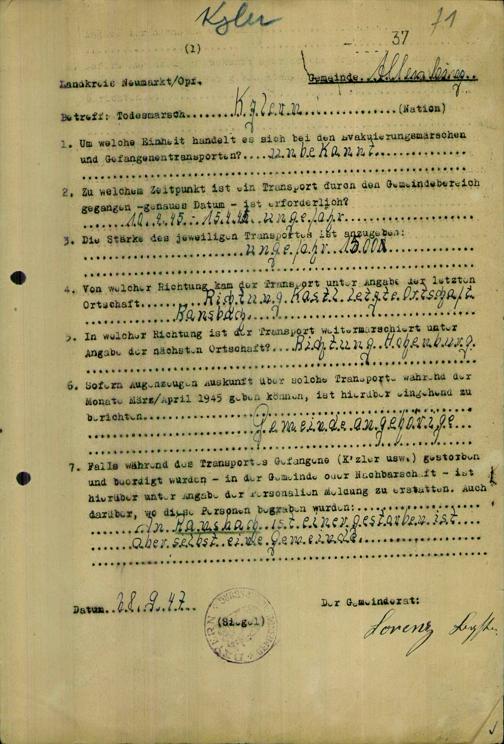 Kzler
71
(1)
37
Landkreis Neumarkt/Opf.
Gemeinde
Betreff: Todesmarsch Kzlern (Nation)
1. Um welche Einheit handelt es sich bei den Evakuierungsmärschen
und Gefangenentransporten? unbekannt
2. Zu welchem Zeitpunkt ist ein Transport durch den Gemeindebereich
gegangen -genaues Datum - ist erforderlich?
10.4.45 - 15.4.45 ungefähr
3. Die Stärke des jeweiligen Transportes ist anzugeben:
ungefähr
4. Von welcher Richtung kam der Transport unter Angabe der letzten
Ortschaft Richtung Kastl letzte Ortschaft
Ransbach
5. In welcher Richtung ist der Transport weitermarschiert unter
Angabe der nächsten Ortschaft? Richtung Hohenburg
6. Sofern Augenzeugen Auskunft über solche Transporte während der
Monate März/April 1945 geben können, ist hierüber eingehend zu
berichten
Gemeindeangehörige
7. Falls während des Transportes Gefangene (K'zler usw.) gestorben
und beerdigt wurden - in der Gemeinde oder Nachbarschaft - ist
hierüber unter Angabe der Personalien Meldung zu erstatten. Auch
darüber, wo diese Personen begraben wurden:
In Ransbach ist einer gestorben ist
aber selbst eine Gemeinde
Datum 28.9.47
(Siegel)
Der Gemeinderat:
Lorenz